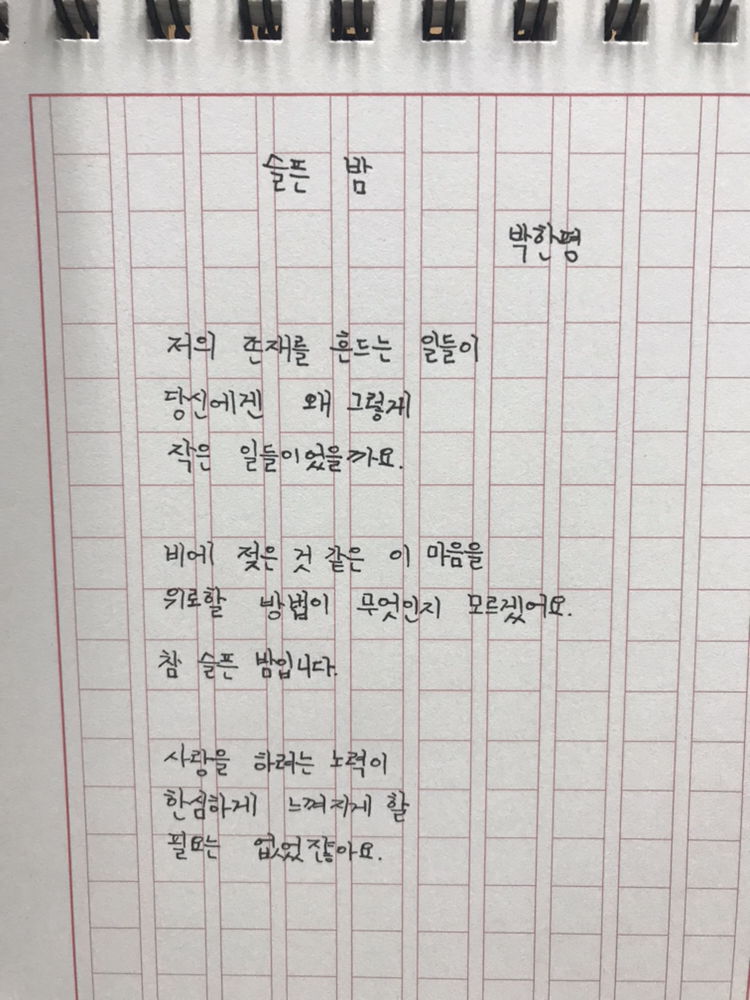 슬픈 밤
박한평
저의 존재를 흔드는 일들이
당신에겐 왜 그렇게
작은 일들이었을까요.
비에 젖은 것 같은 이 마음을
위로할 방법이 무엇인지 모르겠어요.
참 슬픈 밤입니다.
사랑을 하려는 노력이
한심하게 느껴지게 할
필요는 없었잖아요.